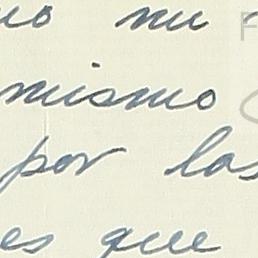 mismo
por las
es que